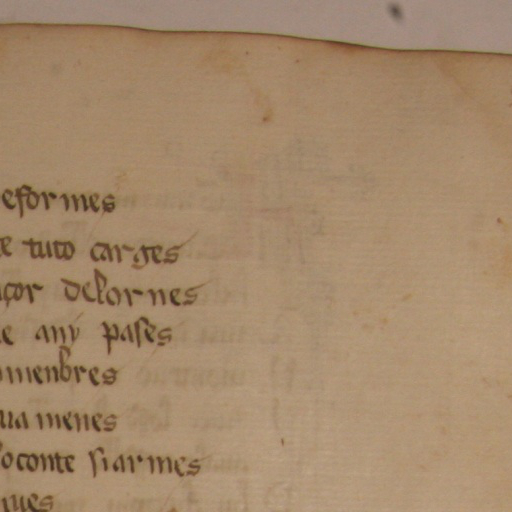 eformes
e tuto carges
açor delornes
e any pases
menbres
ua menes
oconte siarmes